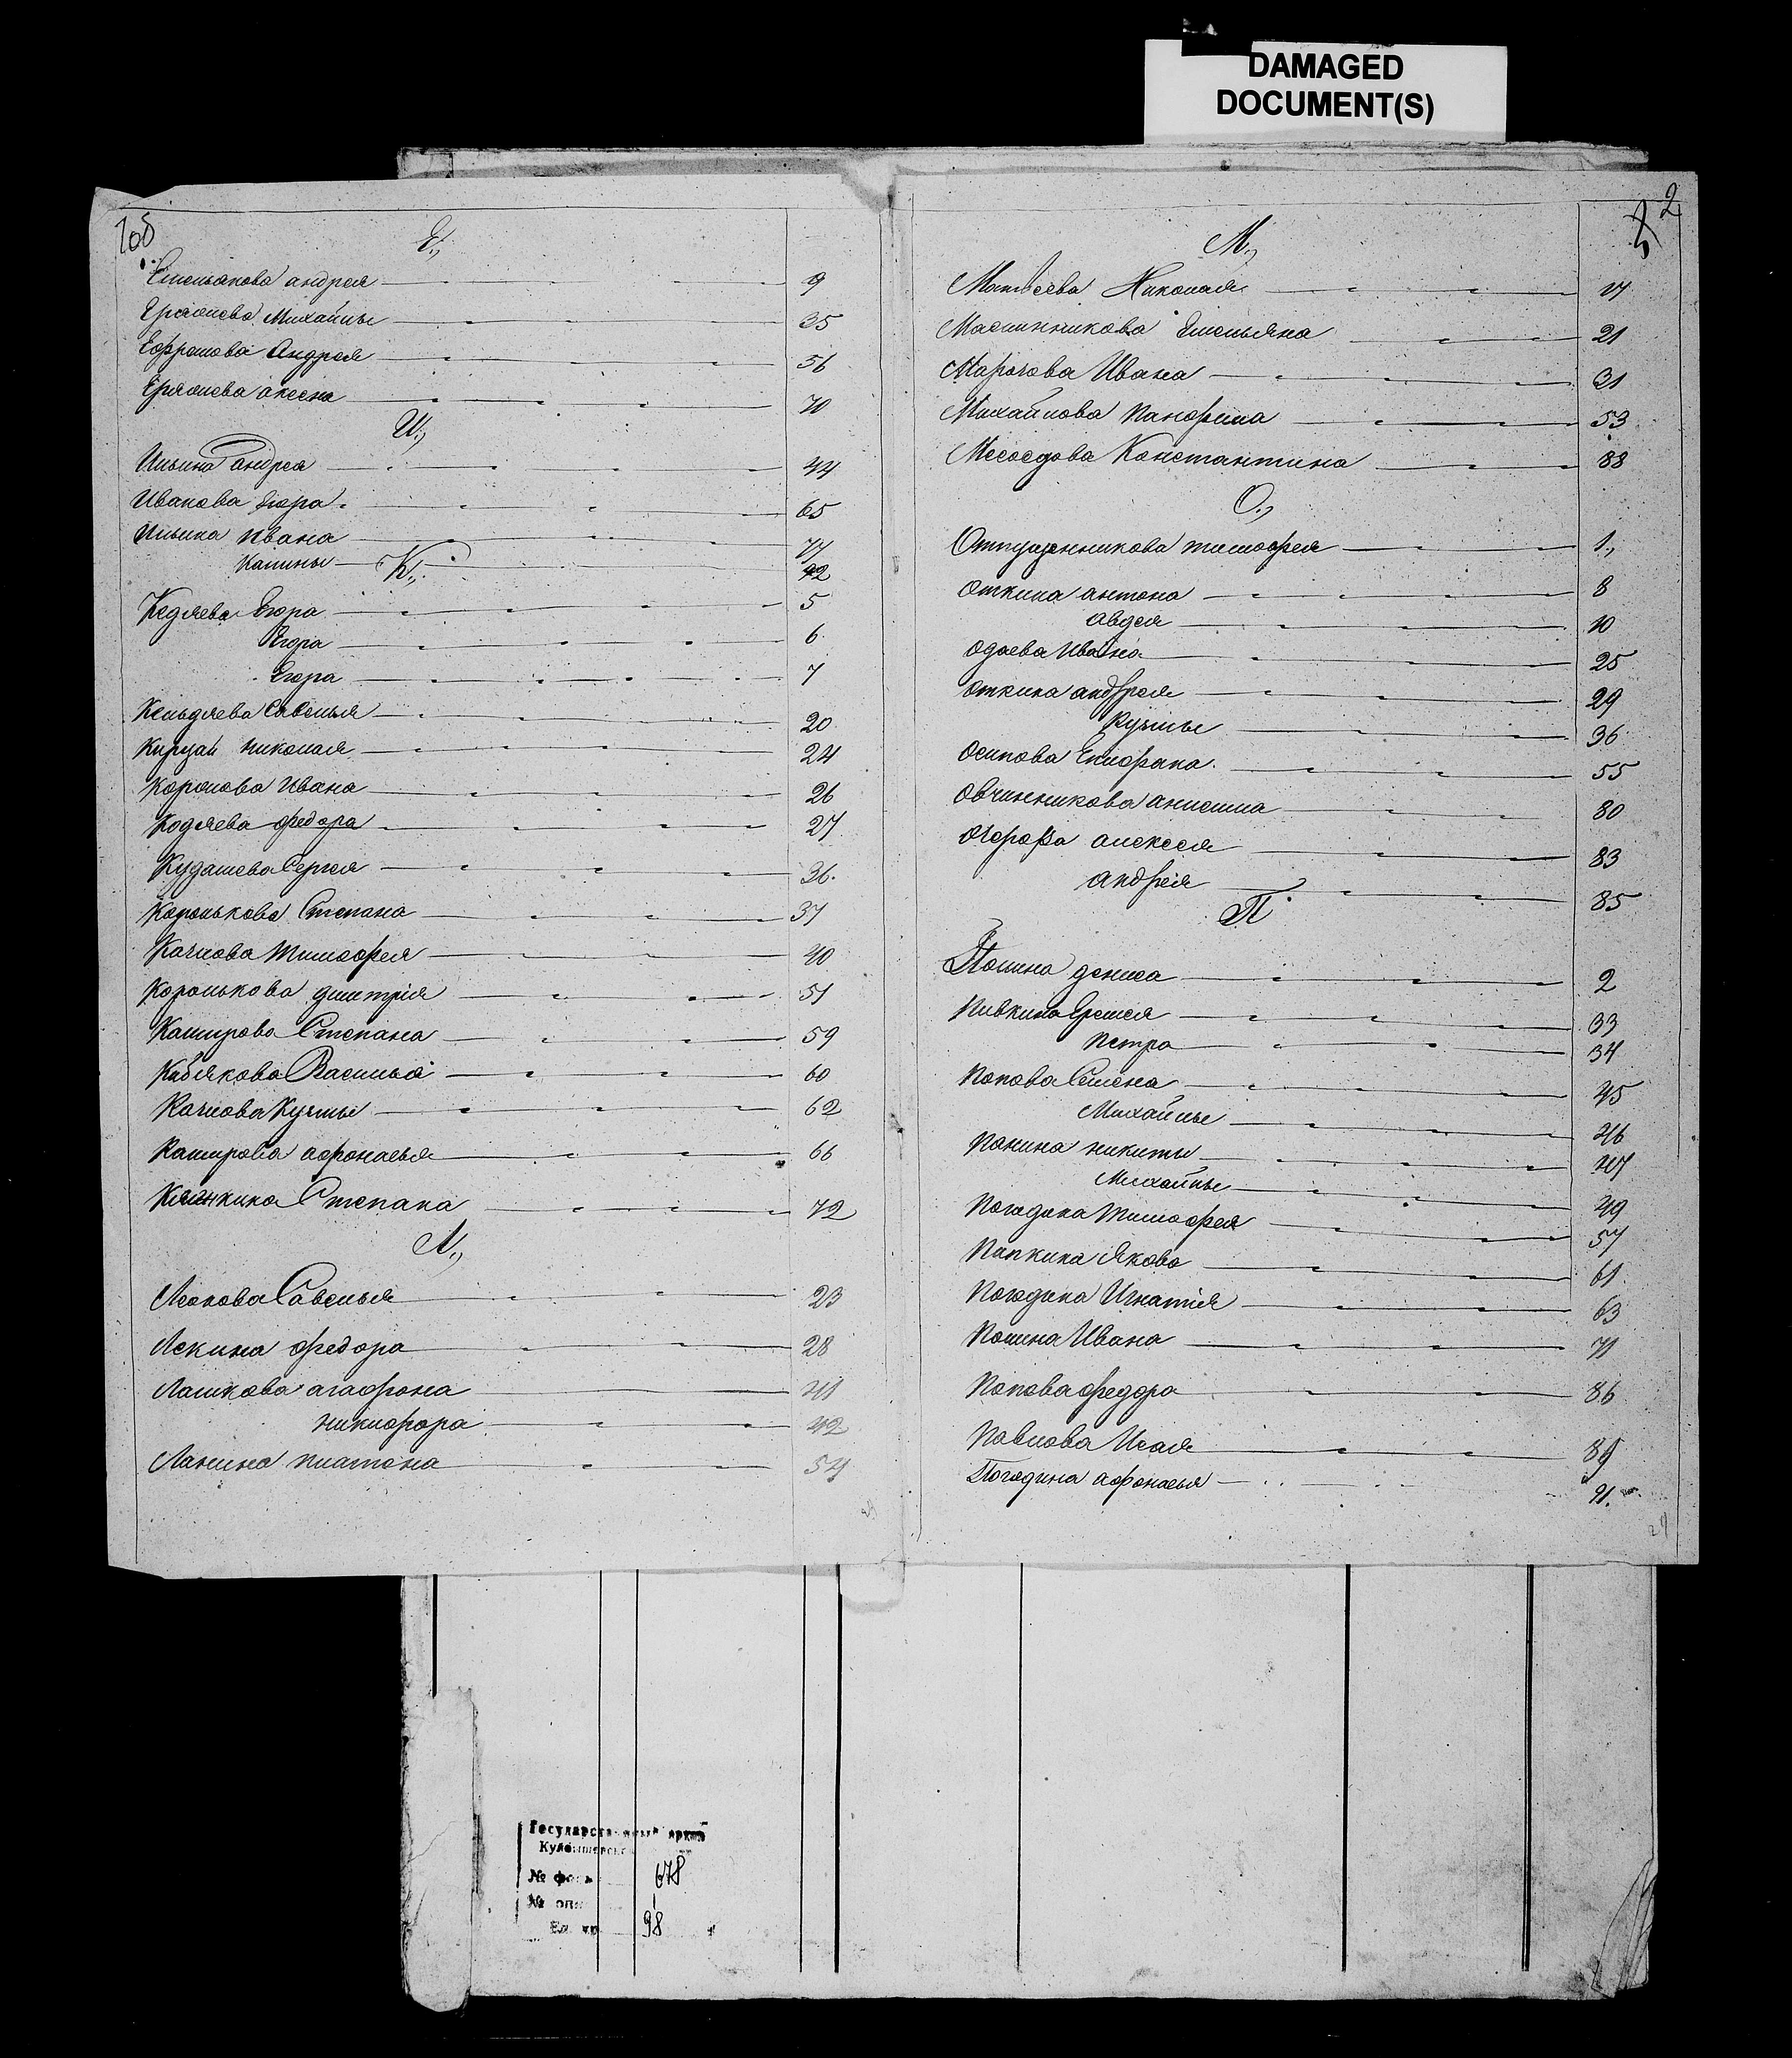 DAMAGED
DOCUMENT(S)
108
Е.,
Емельянова андрея 9
Ермолаева Михайлы 35
Ефремова Андрея 56
Ермолаева аксена 70
И.,
Ильина андрея 44
Иванова Егора 65
Ильина ивана 77
Калины 92
К.,
Кедяева Егора 5
Егора 6
Егора 7
Кельдяева Савелья 20
николая 24
Ивана 26
Кодяева федора 27
Кудашева Сергея 36.
Королькова Степана 37
Качкова Тимофея 40
Королькова дмитрія 51
Каширова Степана 59
Кавлякова Василья 60
Качкова Кузмы 62
Каширова афонасья 66
Степана 72
Л.,
Савелья 23
Лекина федора 28
Лашкова агафона 41
никифора 42
Ланина платона 54
2
М.,
Матвеева Николая 17
Масленникова Емельяна 21
Ивана 31
Михайлова панфила 53
Месоедова Константина 88
О.,
Отпущенникова тимофея 1.,
Откина антона 8
авдея 10
Одаева Ивана 25
Откина андрея 29
Кузмы 36
Осипова Епифана 55
Овчинникова анисима 80
алексея 83
андрея 85
П
Полина дениса 2
Пивкина Еремея 33
петра 34
Попова Семена 45
Михайлы 46
Панина никиты 47
Михайлы 49
Погодина Тимофея 57
Папкина Якова 61
Погодина Игнатія 63
Полина Ивана 71
Попова федора 86
Павлова Исая 89
Погодина афонасья 91.
Государственный архив
Куйбышевской
№ фонда 678
№ оп. 1
Ед. хр. 98